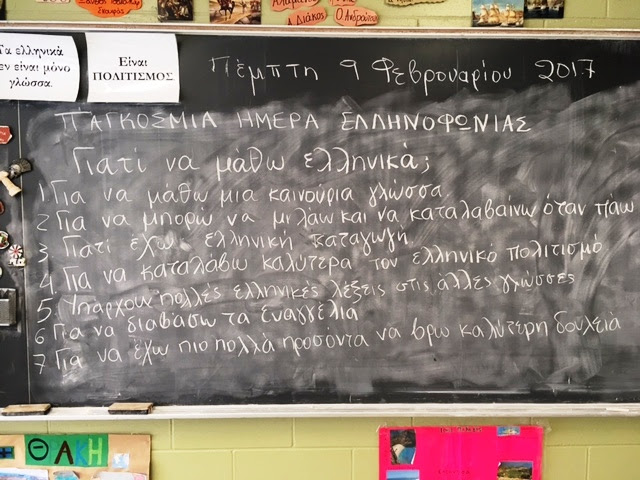 Τα ελληνικά
εν είναι μόνο
γλώσσα.
Είναι
ΠΟΛΙΤΙΣΜΟΣ
Πέμπτη 9 Φεβρουαρίου 2017
ΠΑΓΚΟΣΜΙΑ ΗΜΕΡΑ ΕΛΛΗΝΟΦΩΝΙΑΣ
Γιατί να μάθω ελληνικά;
1. Για να μάθω μια καινούρια γλώσσα
2. Για να μπορώ να μιλάω και να καταλαβαίνω όταν πάω
3. Γιατί έχω ελληνική καταγωγή
4. Για να καταλάβω καλύτερα τον ελληνικό πολιτισμό
5. Υπάρχουν πολλές ελληνικές λέξεις στις άλλες γλώσσες
6 Για να διαβάσω τα Ευαγγέλια
7 Για να έχω πιο πολλά προσόντα να βρω καλύτερη δουλειά
ΘΑΚΗ